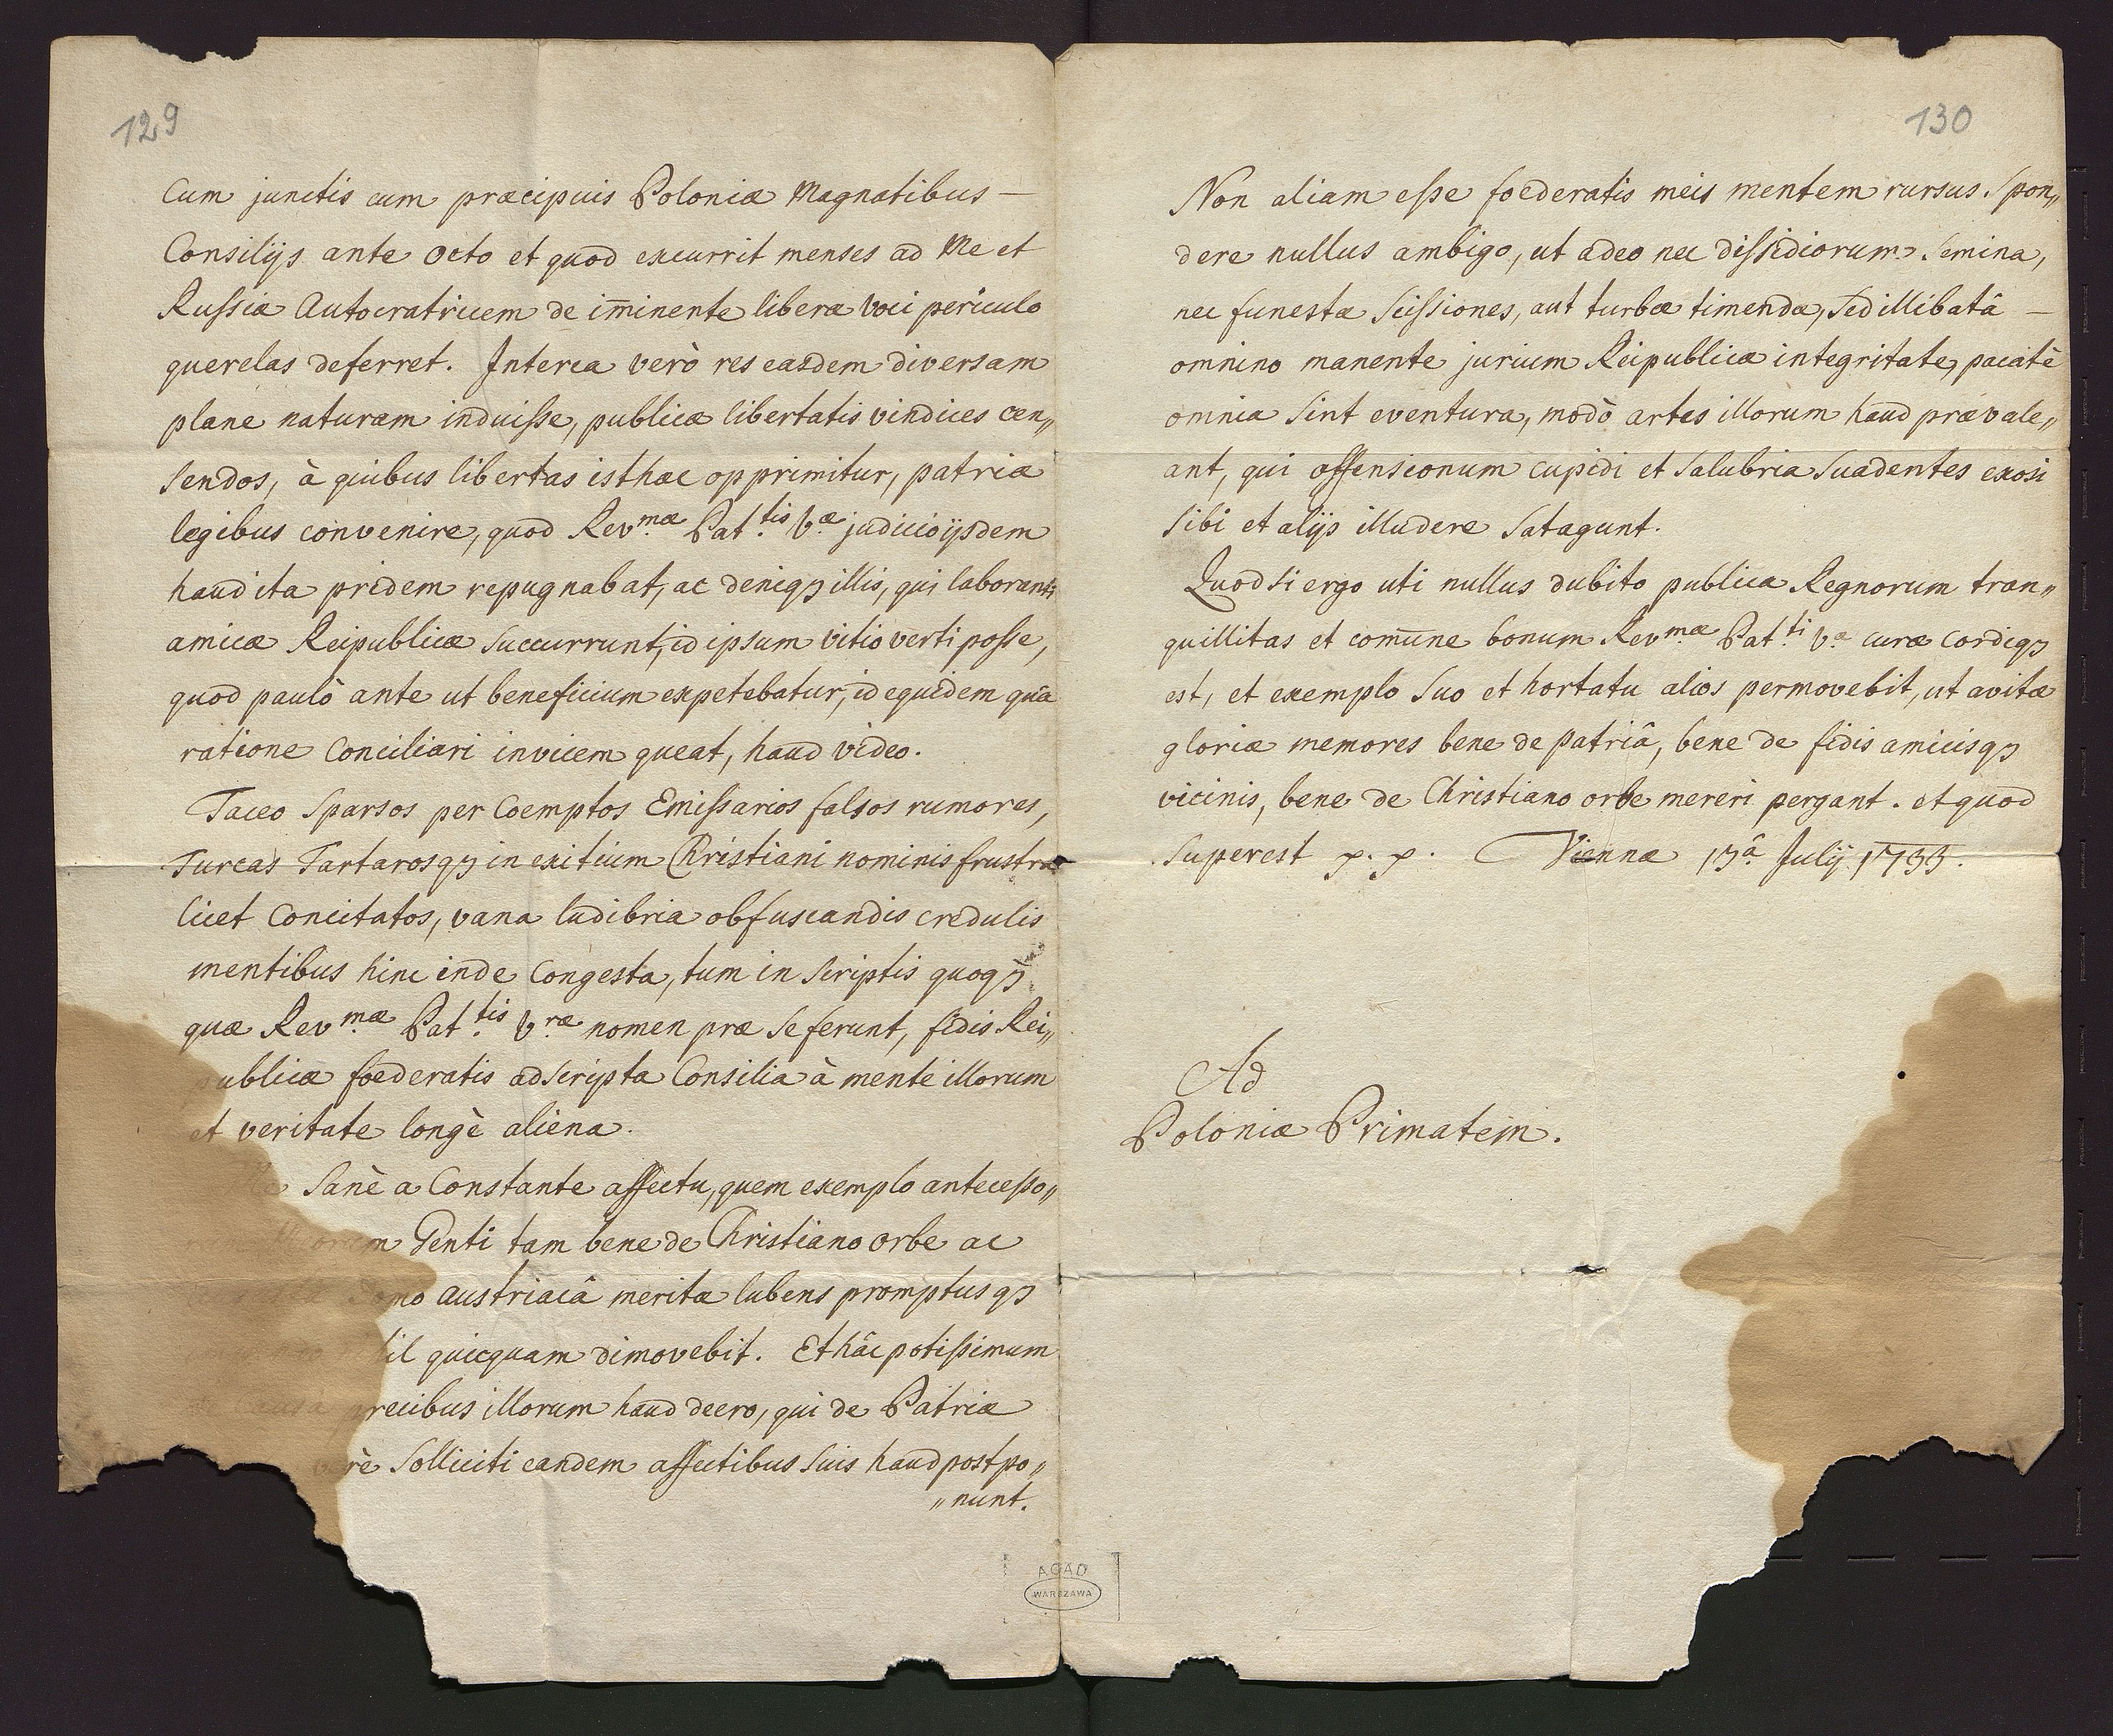 129
Cum junctis cum præcipuis Poloniæ Magnatibus —
Consilijs ante octo et quod excurrit menses ad Me et
Russiæ Autocratricem de im̄inente liberæ voci periculo
querelas deferret. Interea verò res easdem diversam
plane naturam induisse, publicæ libertatis vindices cen„
sendos, à quibus libertas isthæc opprimitur, patriæ
legibus convenire, quod Rev.mæ Pat.tis V.æ judicio ijsdem
haud ita pridem repugnabat, ac deniqꝫ illis, qui laboranti
amicæ Reipublicæ succurrunt, id ipsum vitio verti posse,
quod paulò ante ut beneficium expetebatur, id equidem quâ
ratione conciliari invicem queat, haud video.
Taceo sparsos per coemptos Emissarios falsos rumores,
Turcas Tartarosqꝫ in exitium Christiani nominis frustra
licet concitatos, vana ludibria obfuscandis credulis
mentibus hinc inde congesta, tum in scriptis quoqꝫ
quæ Rev.mæ Pat.tis V.ræ nomen præ se ferunt, fidis Rei„
publicæ foederatis adscripta Consilia à mente illorum
et veritate longè aliena.
Sanè a constante affectu, quem exemplo antecesso„
Genti tam bene de Christiano orbe ac
Domo austriacâ meritæ lubens promptusqꝫ
quicquam dimovebit. Et hâc potissimum
causâ precibus illorum haud deero, qui de Patriâ
verè solliciti eandem affectibus suis haud postpo„
„nunt.
130
Non aliam esse foederatis meis mentem rursus spon„
dere nullus ambigo, ut adeo nec dissidiorum semina,
nec funestæ scissiones, aut turbæ timendæ, sed illibatâ —
omnino manente jurium Reipublicæ integritate, pacatè
omnia sint eventura, modò artes illorum haud prævale„
ant, qui offensionum cupidi et salubria suadentes exosi
sibi et alijs illudere satagunt.
Quodsi ergo uti nullus dubito publica Regnorum tran„
quillitas et com̄une bonum Rev.mæ Pat.ti V.æ curæ cordiqꝫ
est, et exemplo suo et hortatu alios permovebit, ut avitæ
gloriæ memores bene de patriâ, bene de fidis amicisqꝫ
vicinis, bene de Christiano orbe mereri pergant. et quod
superest p. p. Viennæ 13â Julij 1733.
Ad
Poloniæ Primatem.
AGAD
WARSZAWA